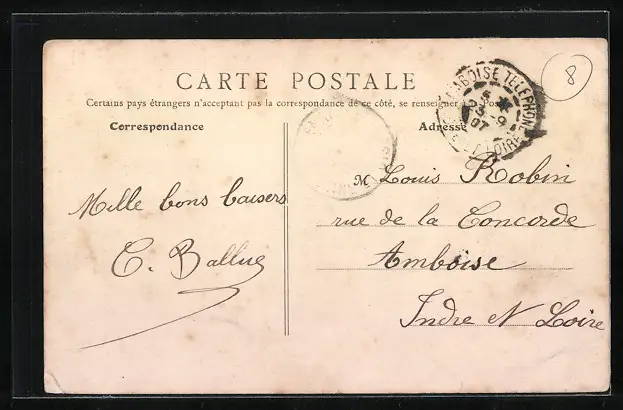 CARTE POSTALE
Certains pays étrangers n'acceptant pas la correspondance de ce côté, se renseigner à la Poste
Correspondance
Adresse
8
AMBOISE TELEPHONE
23 -9
07
ET LOIRE
M Louis Robin
rue de la Concorde
Amboise
Indre et Loire
Mille bons baisers
C. Ballue